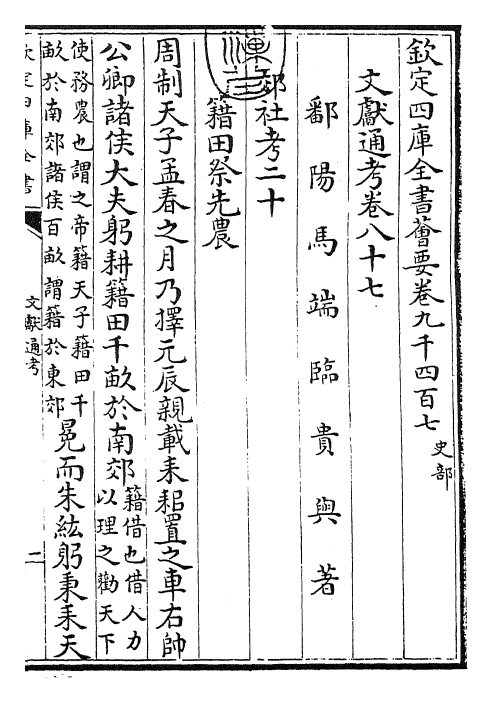 欽定四庫全書薈要卷九千四百七 史部
文獻通考卷八十七
鄱陽馬端臨貴與著
郊社考二十
籍田祭先農
周制天子孟春之月乃擇元辰親載耒耜置之車右帥
公卿諸侯大夫躬耕籍田千畝於南郊籍借也借人力
以理之勸天下
使務農也謂之帝籍天子籍田千
畝於南郊諸侯百畝謂籍於東郊冕而朱紘躬秉耒天
欽定四庫全書
文獻通考